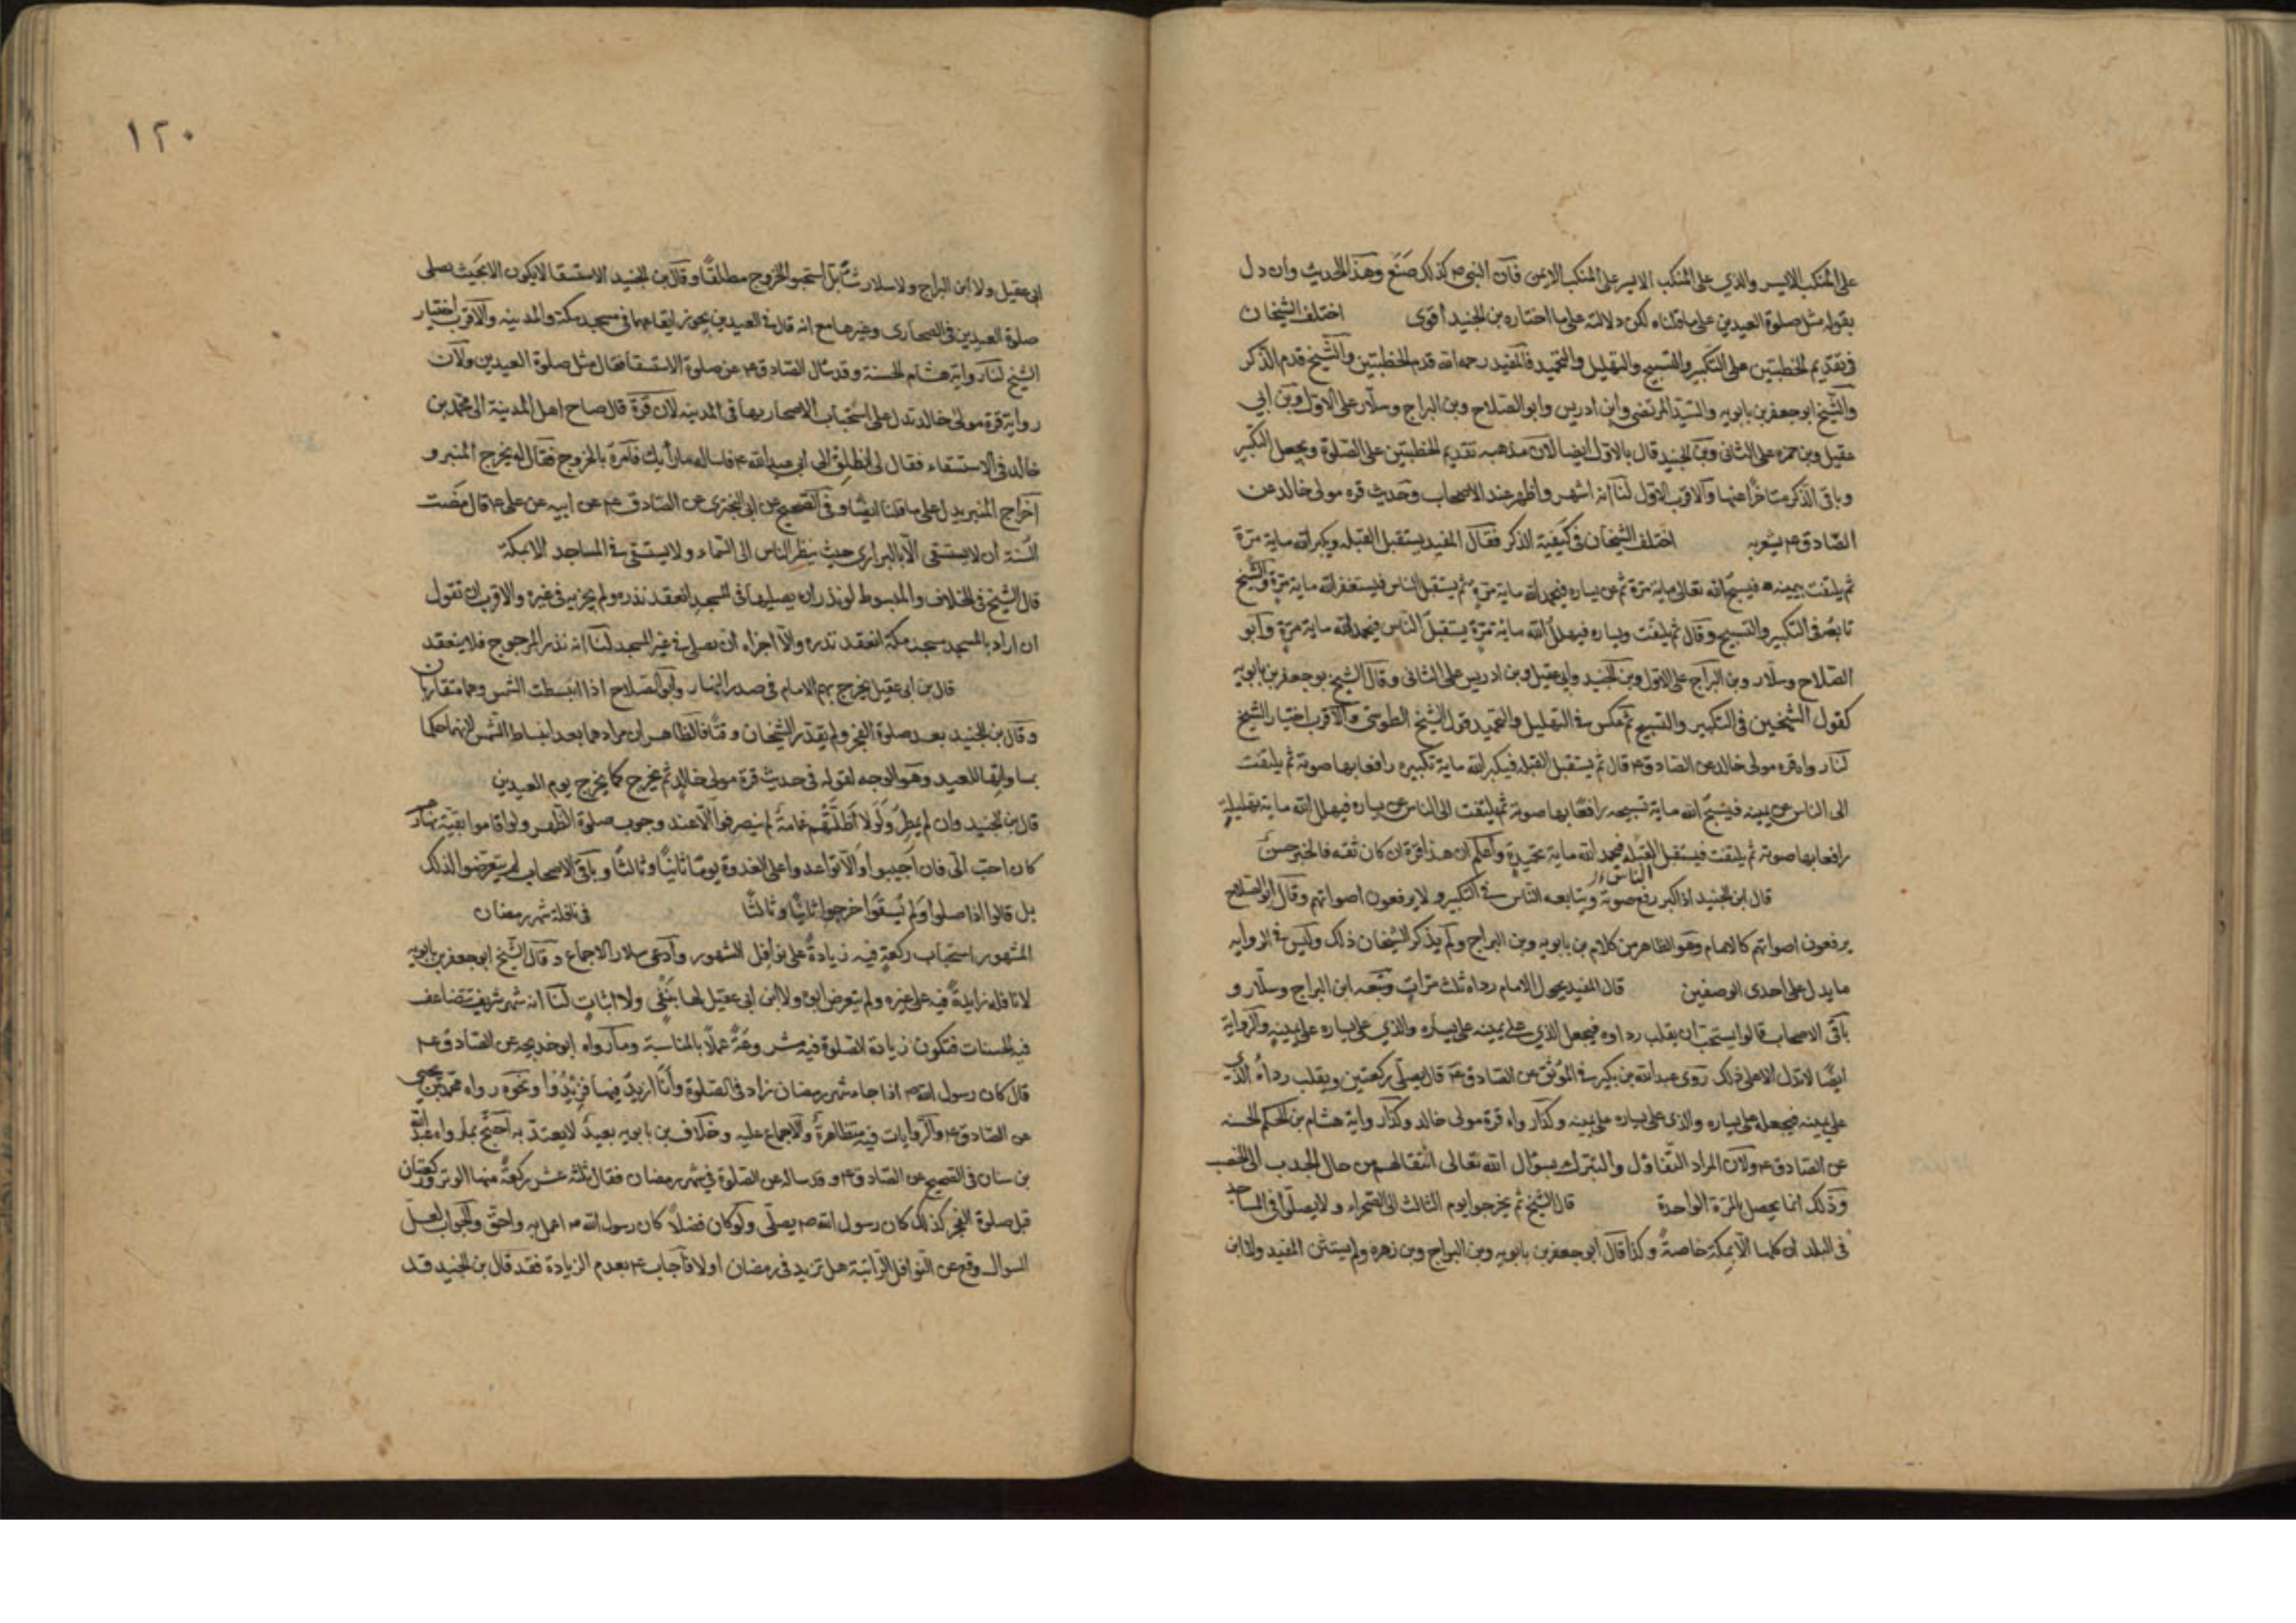 على المنكب الايسر والذي على المنكب الايسر على المنكب الايمن فان النبي ص كذلك صنع وهذا الحديث وان دل
بقوله مثل صلوة العيدين على ما قلناه لكن دلالته على ما اختاره بن الجنيد أقوى اختلف الشيخان
في تقديم الخطبتين على التكبير والتسبيح والتهليل والتحميد فالمفيد رحمه الله قدم الخطبتين والشيخ قدم الذكر
والشيخ ابو جعفر بن بابويه والسيد المرتضى وابن ادريس وابو الصلاح وبن البراج وسلار على الاول وبن أبي
عقيل وبن حمزه على الثاني وبن الجنيد قال بالاول ايضا لان مذهبه تقديم الخطبتين على الصلوة ويجعل التكبير
وباقي الذكر متاخرا عنها والاقرب الاول لنا انه اشهر واظهر عند الاصحاب وحديث قره مولى خالد عن
الصادق ع يشعر به اختلف الشيخان في كيفية الذكر فقال المفيد يستقبل القبله ويكبر الله ماية مرة
ثم يلتفت بيمينه فيسبح الله تعالى ماية مرة ثم عن يساره فيحمد الله ماية مرة ثم يستقبل الناس فيستغفر الله ماية مرة والشيخ
تابعه في التكبير والتسبيح وقال ثم يلتفت ويساره فيهلل الله ماية مرة يستقبل الناس فيحمد الله ماية مرة وابو
الصلاح وسلار وبن البراج على الاول وبن الجنيد وابي عقيل وبن ادريس على الثاني وقال الشيخ بو جعفر بن بابويه
كقول الشيخين في التكبير والتسبيح ثم عكس في التهليل والتحميد قول الشيخ الطوسي والاقرب اختيار الشيخ
لنا رواه قره مولى خالد عن الصادق ع قال ثم يستقبل القبله فيكبر الله ماية تكبيره رافعا بها صوته ثم يلتفت
الى الناس عن يمينه فيسبح الله ماية تسبيحه رافعا بها صوته ثم يلتفت الى الناس عن يساره فيهلل الله ماية تهليلة
رافعا بها صوته ثم يلتفت فيستقبل القبله فيحمد الله ماية تحميدة وأعلم ان هذا قرة ان كان ثقه فالخبر حسن
الناس
قال ابن الجنيد اذا كبر رفع صوته ويتابعه الناس في التكبير ولا يرفعون اصواتهم وقال ابو الصلاح
يرفعون اصواتهم كالامام وهو الظاهر من كلام بن بابويه وبن البراج ولم يذكر الشيخان ذلك وليس في الروايه
ما يدل على احدى الوصفين قال المفيد يحول الامام رداه ثلث مرات وتبعه ابن البراج وسلار و
باقي الاصحاب قالوا يستحب ان يقلب رداوه فيجعل الذي على يمينه على يساره والذي على يساره على يمينه والرواية
ايضا لا تدل الا على ذلك روى عبد الله بن بكير في الموثق عن الصادق ع قال يصلى ركعتين ويقلب رداه الذي
على يمينه فيجعله على يساره والذي على يساره على يمينه وكذا رواه قرة مولى خالد وكذا رواية هشام بن الحكم الحسنه
عن الصادق ع ولان المراد التفاؤل والتبرك بسؤال الله تعالى انتقالهم من حال الجدب الى الخصب
وذلك انما يحصل بالمرة الواحدة قال الشيخ ثم يخرجوا يوم الثالث الى الصحراء ولا يصلوا في المساجد
في البلدان كلها الا بمكة خاصة وكذا قال ابو جعفر بن بابويه وبن البراج وبن زهره ولم يستثن المفيد ولا ابن
١٢٠
ابي عقيل ولا ابن البراج ولا سلار شيئا بل استحبوا الخروج مطلقا وقال بن الجنيد الاستسقا لا يكون الا بحيث يصلى
صلوة العيدين في الصحارى وغيرها مع انه قال في العيدين يجوز ايقاعهما في مسجد مكة والمدينه والاقرب اختيار
الشيخ لنا رواية هشام الحسنة وقد سال الصادق ع عن صلوة الاستسقا فقال مثل صلوة العيدين ولان
رواية قرة مولى خالد تدل على استحباب الاصحار بها في المدينه لان قرة قال صاح اهل المدينة الى محمد بن
خالد في الاستسقاء فقال لى انطلق الى ابي عبد الله ع فاساله ما رأيك فامره بالخروج فقال له يخرج المنبر و
اخراج المنبر يدل على ما قلنا ايضا وفي الصحيح عن ابي البختري عن الصادق ع عن ابيه عن على ع قال مضت
السنة ان لا يستسقى الا بالبرارى حيث ينظر الناس الى السماء ولا يستسقى في المساجد الا بمكة
قال الشيخ في الخلاف والمبسوط لو نذر ان يصليها في المسجد انعقد نذره ولم يجز في غيره والاقرب ان نقول
ان اراد بالمسجد مسجد مكة انعقد نذره والا اجزاه ان يصلى في غير المسجد لنا انه نذر المرجوح فلا ينعقد
قال بن ابي عقيل يخرج بهم الامام في صدر النهار وابو الصلاح اذا انبسطت الشمس وهما متقاربان
وقال بن الجنيد بعد صلوة الفجر ولم يقدر الشيخان وقتا فالظاهر ان مرادهما بعد انبساط الشمس لانهما حكما
بمساواتها للعيد وهو الوجه لقوله في حديث قرة مولى خالد ثم يخرج كما يخرج يوم العيدين
قال بن الجنيد وان لم يمطروا ولا اظلتهم غمامة لم ينصرفوا الا عند وجوب صلوة الظهر ولو اقاموا بقية نهارهم
كان احب الى فان اجيبوا والا تواعدوا على الغدوة يوما ثانيا وثالثا وباقي الاصحاب لم يتعرضوا لذلك
بل قالوا اذا صلوا ولم يسقوا خرجوا ثانيا وثالثا في نافلة شهر رمضان
المشهور استحباب ركعة فيه زيادة على نوافل الشهور وادعى سلار الاجماع وقال الشيخ ابو جعفر بن بابويه
لا نافله زايدة فيه على غيره ولم يتعرض ابوه ولا ابن ابي عقيل لها بنفى ولا اثبات لنا انه شهر شريف تتضاعف
فيه الحسنات فتكون زيادة الصلوة فيه مشروعة عملا بالمناسبة وما رواه ابو خديجه عن الصادق ع
قال كان رسول الله ص اذا جاء شهر رمضان زاد في الصلوة وأنا ازيد فيها فزيدوا ونحوه رواه محمد بن يحيى
عن الصادق ع والروايات فيه متظاهرة والاجماع عليه وخلاف بن بابويه بعيد لا يعتد به احتج بما رواه عبد الله
بن سنان في الصحيح عن الصادق ع وقد ساله عن الصلوة في شهر رمضان فقال ثلثه عشر ركعة منها الوتر وركعتان
قبل صلوة الفجر كذلك كان رسول الله ص يصلى ولو كان فضلا كان رسول الله ص اعمل به واحق والجواب لعل
السوال وقع عن النوافل الراتبة هل تزيد في رمضان او لا فاجاب ع بعدم الزيادة فقد قال بن الجنيد قد